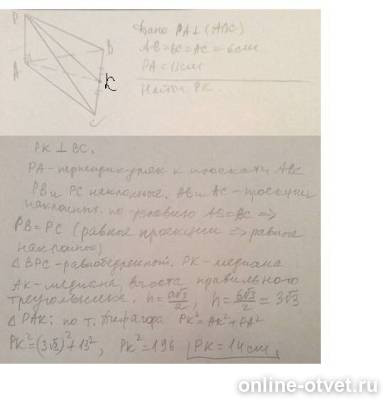 P
A
B
K
C
Дано PA⊥(ABC)
AB=BC=AC=6см
PA=11см
Найти PK.
PK⊥BC.
PA-перпендикуляр к плоскости ABC
PB и PC наклонные. AB и AC-проекции
наклонных. по условию AB=BC =>
PB=PC (равные проекции => равные
наклонные)
△BPC-равнобедренный. PK-медиана
AK-медиана, высота правильного
треугольника. h=a√3/2, h=6√3/2=3√3
△PAK: по т. Пифагора PK²=AK²+PA²
PK²=(3√3)²+13², PK²=196 PK=14см
online-otvet.ru